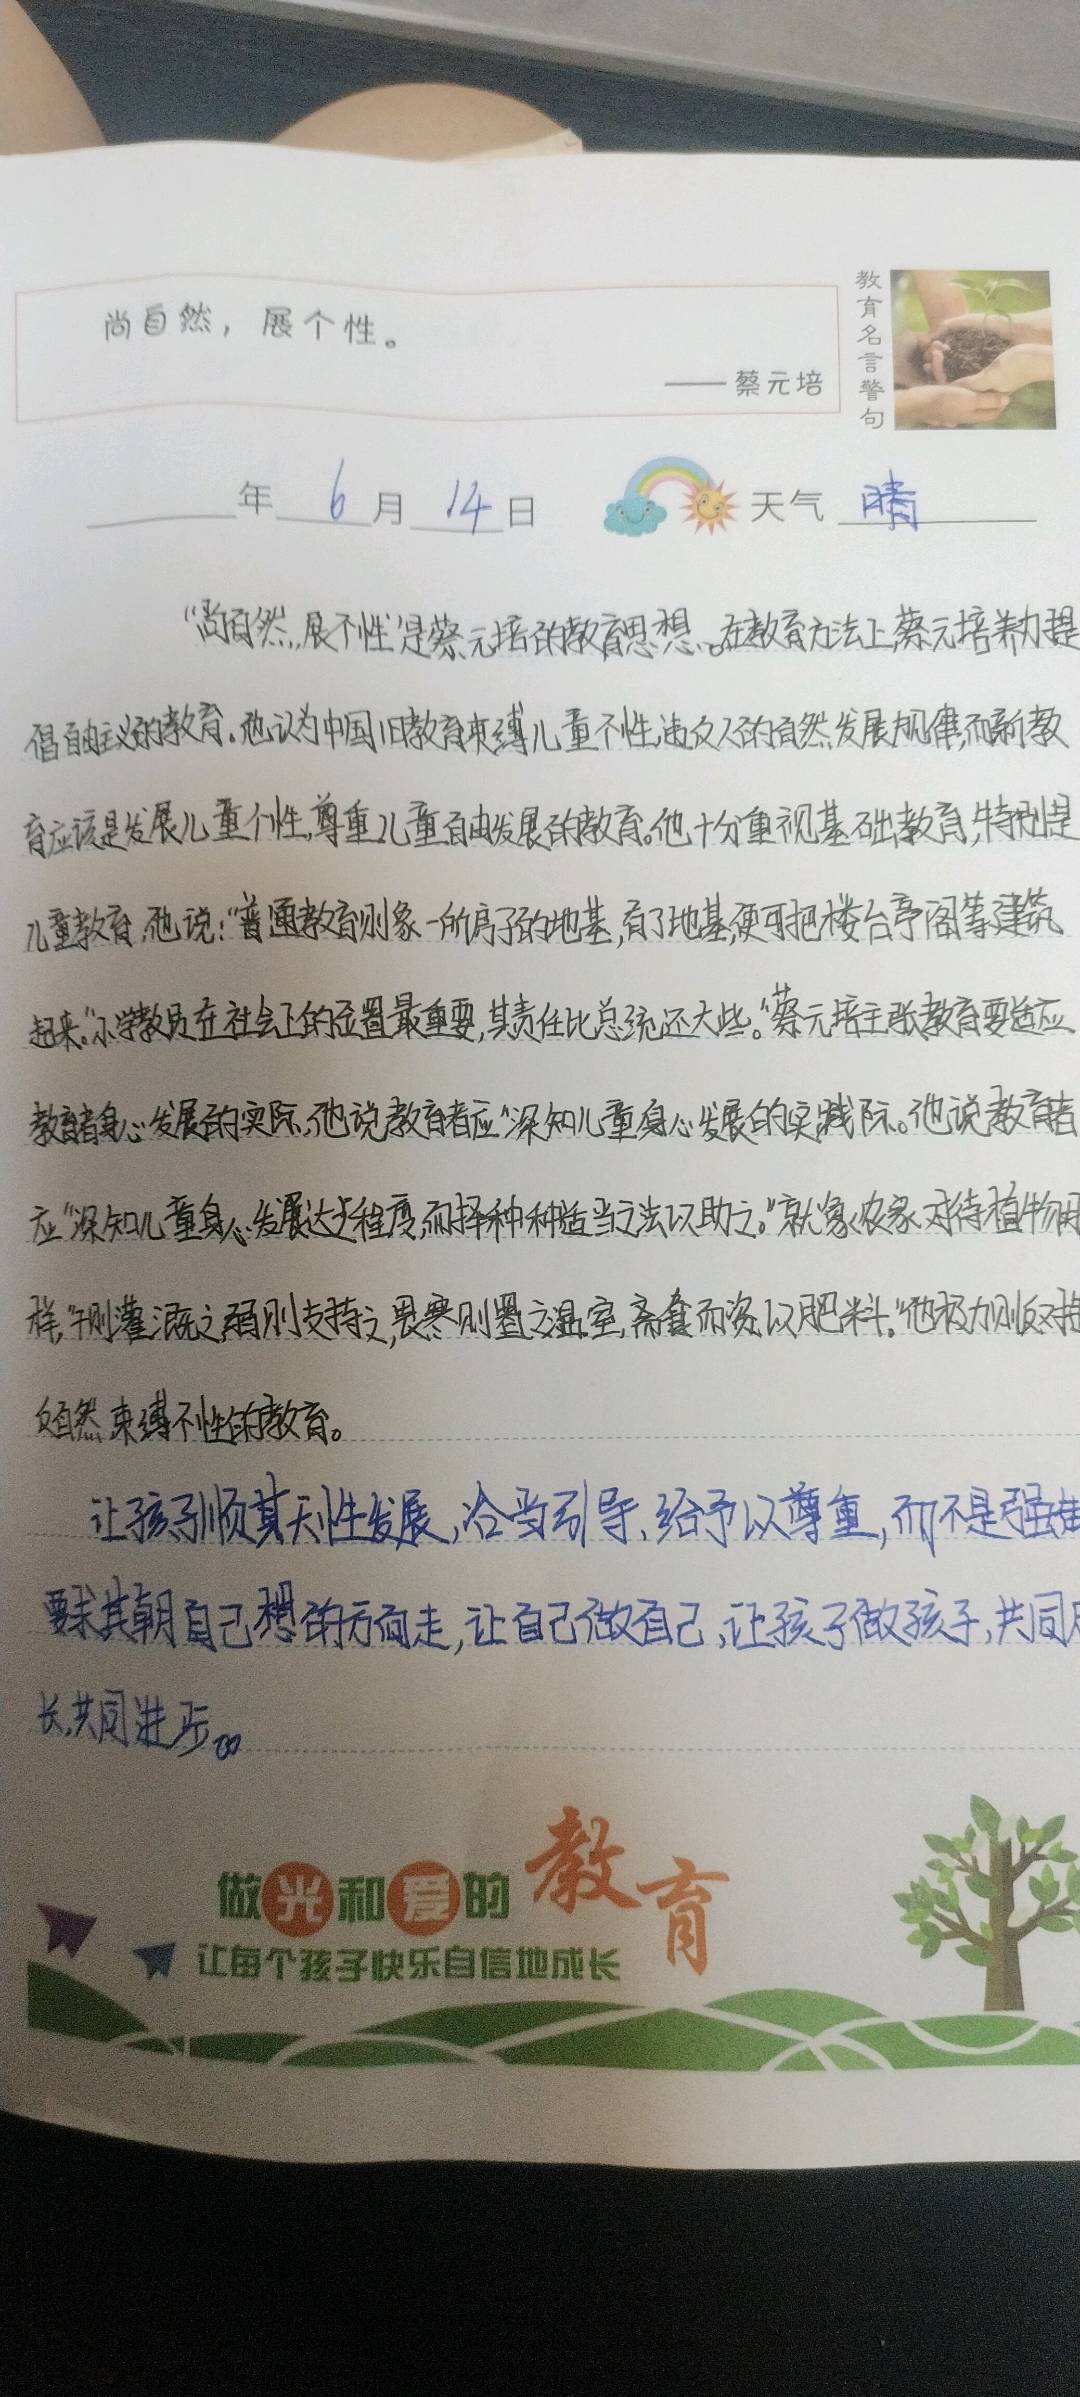 尚自然，展个性。
——蔡元培
教育名言警句
年 6 月 14 日 天气 晴
“尚自然，展个性”是蔡元培的教育思想。在教育方法上，蔡元培养力提
倡自由主义的教育。他认为中国旧教育束缚儿童个性，违反人的自然发展规律，而新教
育应该是发展儿童个性，尊重儿童自由发展的教育。他十分重视基础教育，特别是
儿童教育，他说：“普通教育则象一所房子的地基，有了地基，便可把楼台亭阁等建筑
起来。”“小学教员在社会上的位置最重要，其责任比总统还大些。”蔡元培主张教育要适应
教育者身心发展的实际，他说教育者应“深知儿童身心发展的实践际。他说教育者
应“深知儿童身心发展达于程度，而择种种适当之法以助之。”就象农家对待植物
样，“干则灌溉之，弱则支持之，畏寒则置之温室，需食而资以肥料。”他极力则反对
反自然束缚个性的教育。
让孩子顺其天性发展，恰当引导，给予以尊重，而不是强
要求其朝自己想的方向走，让自己做自己，让孩子做孩子，共同
长，共同进步。
做光和爱的教育
让每个孩子快乐自信地成长